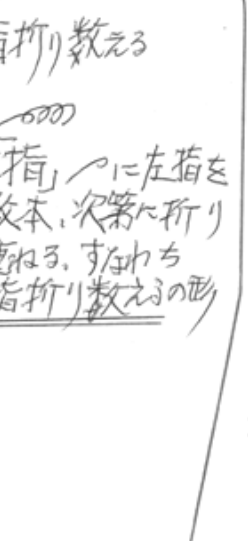 指折り数える
指」に左指を
数本、次第に折り
重ねる、すなわち
指折り数えるの形